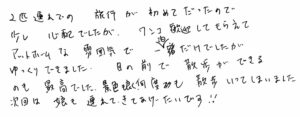 2匹連れでの 旅行が 初めてだったので
少し 心配でしたが、ワンコ歓迎してもらえて
アットホームな 雰囲気で 一泊だけでしたが
ゆっくりできました。 目の前で 散歩ができる
のも 最高でした。景色娘と何度も 散歩いってしまいました
次回は 娘も 連れてきてあげたいです!!